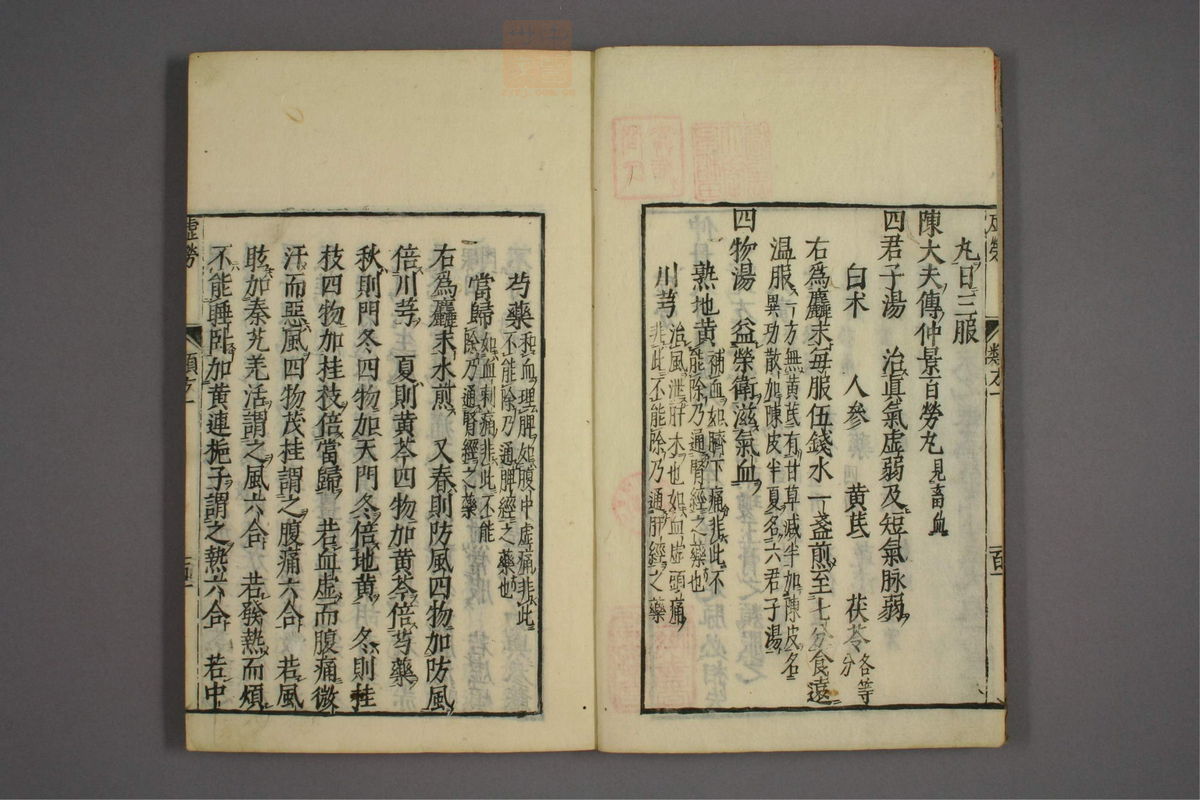 丸日三服
陳大夫傳仲景百勞丸見畜血
四君子湯　治眞氣虛弱及短氣脉弱
白术　人參　黄芪　茯苓各等分
右爲麤末每服伍錢水一盞煎至七分食遠
温服一方無黄芪有甘草减半加陳皮名
異功散加陳皮半夏名六君子湯
四物湯　益榮衛滋氣血
熟地黄補血如臍下痛非此不
能除乃通腎經之藥也
川芎治風泄肝木也如血虛頭痛
非此不能除乃通肝經之藥
芍藥和血理脾如腹中虛痛非此
不能除乃通脾經之藥也
當歸如血刺痛非此不能
除乃通腎經之藥
右爲麤末水煎　又春則防風四物加防風
倍川芎　夏則黄芩四物加黄芩倍芍藥
秋則門冬四物加天門冬倍地黄　冬則桂
枝四物加桂枝倍當歸　若血虛而腹痛微
汗而惡風四物茂桂謂之腹痛六合　若風
眩加秦艽羌活謂之風六合　若發熱而煩
不能睡卧加黄連梔子謂之熱六合　若中
虛勞